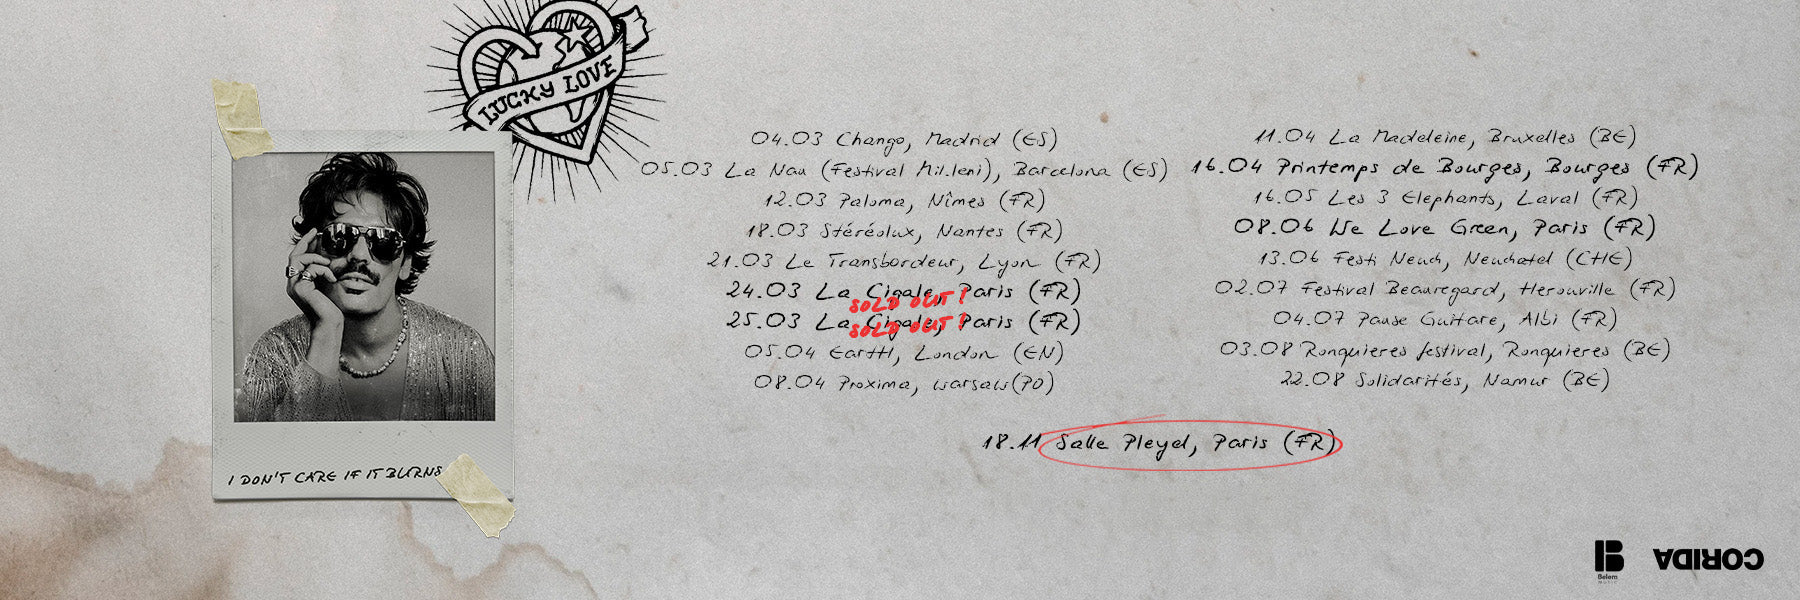 LUCKY LOVE
I DON'T CARE IF IT BURNS
04.03 Chango, Madrid (ES)
05.03 La Nau (Festival Mil.leni), Barcelona (ES)
12.03 Paloma, Nîmes (FR)
18.03 Stéréolux, Nantes (FR)
21.03 Le Transbordeur, Lyon (FR)
24.03 La Cigale, Paris (FR)
SOLD OUT!
25.03 La Cigale, Paris (FR)
SOLD OUT!
05.04 EartH, London (EN)
08.04 Proxima, warsaw(PO)
11.04 La Madeleine, Bruxelles (BE)
16.04 Printemps de Bourges, Bourges (FR)
16.05 Les 3 Elephants, Laval (FR)
08.06 We Love Green, Paris (FR)
13.06 Festi Neuch, Neuchatel (CHE)
02.07 Festival Beauregard, Herouville (FR)
04.07 Pause Guitare, Albi (FR)
03.08 Ronquieres festival, Ronquieres (BE)
22.08 Solidarités, Namur (BE)
18.11 Salle Pleyel, Paris (FR)
Belem
MUSIC
CORIDA